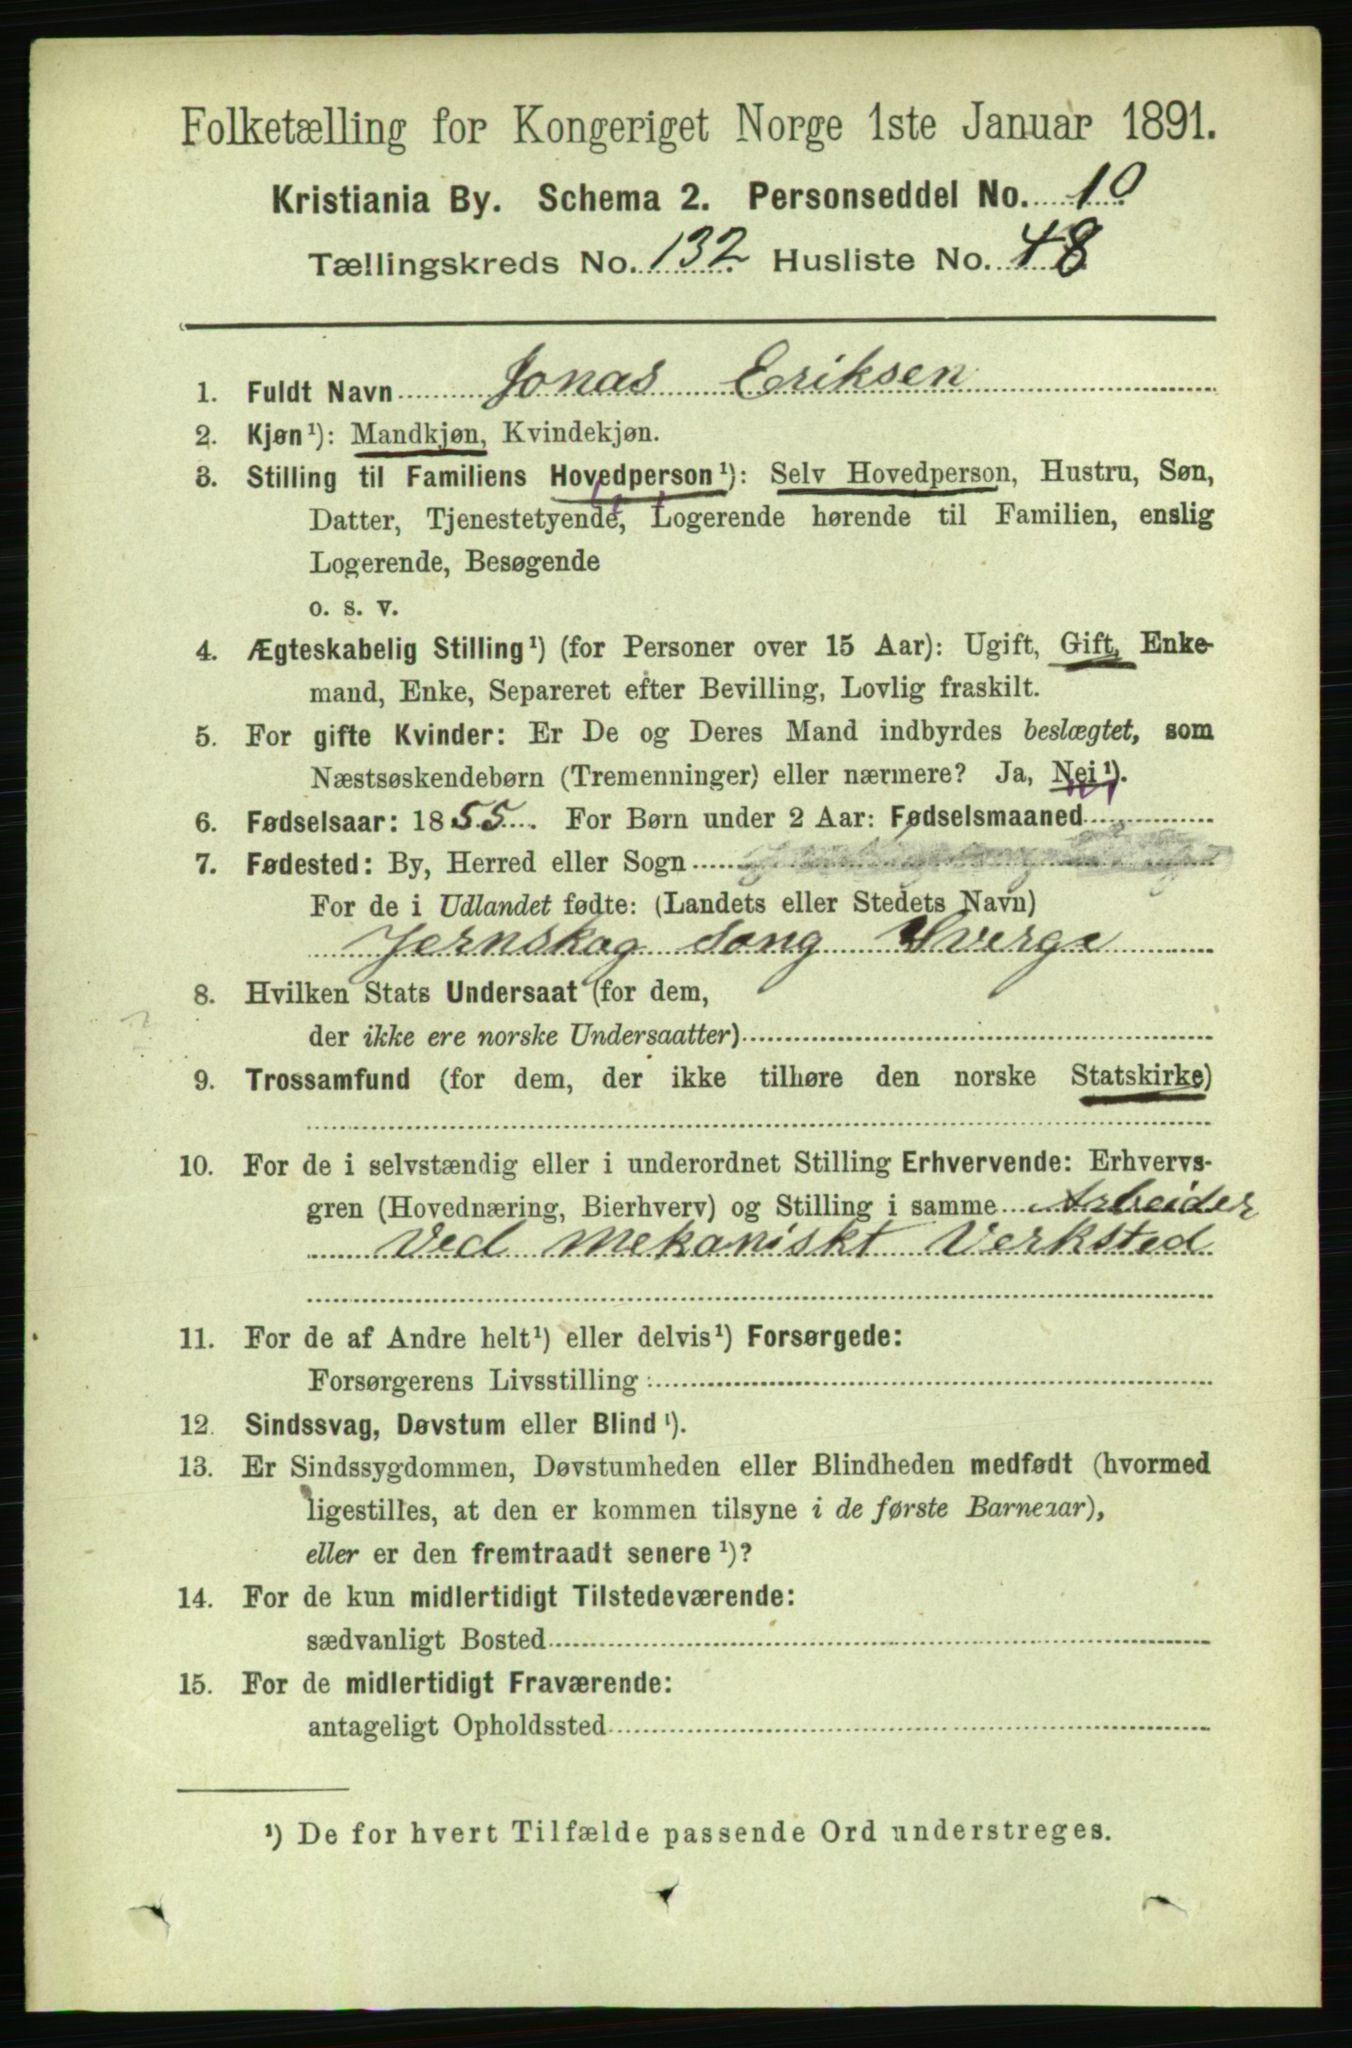 Folketælling for Kongeriget Norge 1ste Januar 1891.
Kristiania By. Schema 2. Personseddel No. 10
Tællingskreds No. 132 Husliste No. 48
1. Fuldt Navn Jonas Eriksen
2. Kjøn¹): Mandkjøn, Kvindekjøn.
3. Stilling til Familiens Hovedperson¹): Selv Hovedperson, Hustru, Søn,
Datter, Tjenestetyende, Logerende hørende til Familien, enslig
Logerende, Besøgende
o. s. v.
4. Ægteskabelig Stilling¹) (for Personer over 15 Aar): Ugift, Gift, Enke-
mand, Enke, Separeret efter Bevilling, Lovlig fraskilt.
5. For gifte Kvinder: Er De og Deres Mand indbyrdes beslægtet, som
Næstsøskendebørn (Tremenninger) eller nærmere? Ja, Nei¹).
6. Fødselsaar: 1855. For Børn under 2 Aar: Fødselsmaaned
7. Fødested: By, Herred eller Sogn
For de i Udlandet fødte: (Landets eller Stedets Navn)
Jernskog Song Sverge
8. Hvilken Stats Undersaat (for dem,
der ikke ere norske Undersaatter)
9. Trossamfund (for dem, der ikke tilhøre den norske Statskirke)
10. For de i selvstændig eller i underordnet Stilling Erhvervende: Erhvervs-
gren (Hovednæring, Bierhverv) og Stilling i samme Arbeider
Ved mekaniskt Verksted
11. For de af Andre helt¹) eller delvis¹) Forsørgede:
Forsørgerens Livsstilling :
12. Sindssvag, Døvstum eller Blind¹).
13. Er Sindssygdommen, Døvstumheden eller Blindheden medfødt (hvormed
ligestilles, at den er kommen tilsyne i de første Barneaar),
eller er den fremtraadt senere¹)?
14. For de kun midlertidigt Tilstedeværende:
sædvanligt Bosted
15. For de midlertidigt Fraværende:
antageligt Opholdssted
¹) De for hvert Tilfælde passende Ord understreges.